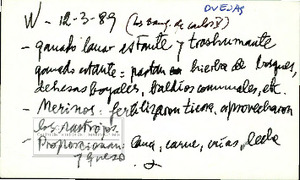 OVEJAS
W - 12-3-89 (los Bang. de Carlos V)
- ganado lanar estante y trashumante
ganado estante = pastan hierba de bosques,
dehesas boyales, baldíos comunales, etc.
- Merinos = fertilizaron tierra, aprovecharon
los rastrojos
- Proporcionan: lana, carne, crías, leche
y queso